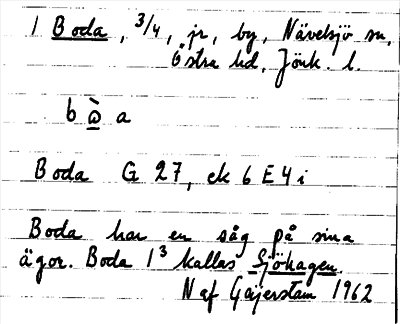 1 Boda, 3/4, jr, by, Nävelsjö sn,
Östra hd, Jönk. l.
b ὼ a
Boda G 27, ek 6 E 4 i
Boda har en såg på sina
ägor. Boda 1³ kallas Sjöhagen.
N af Gäjerstam 1962